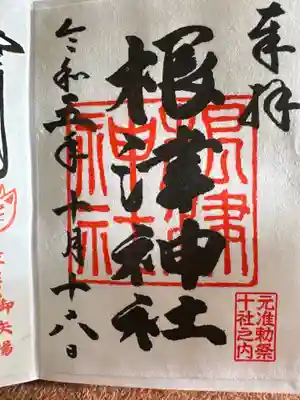 奉拝
根津神社
根津神社
令和五年十月十八日
元准勅祭
十社之内